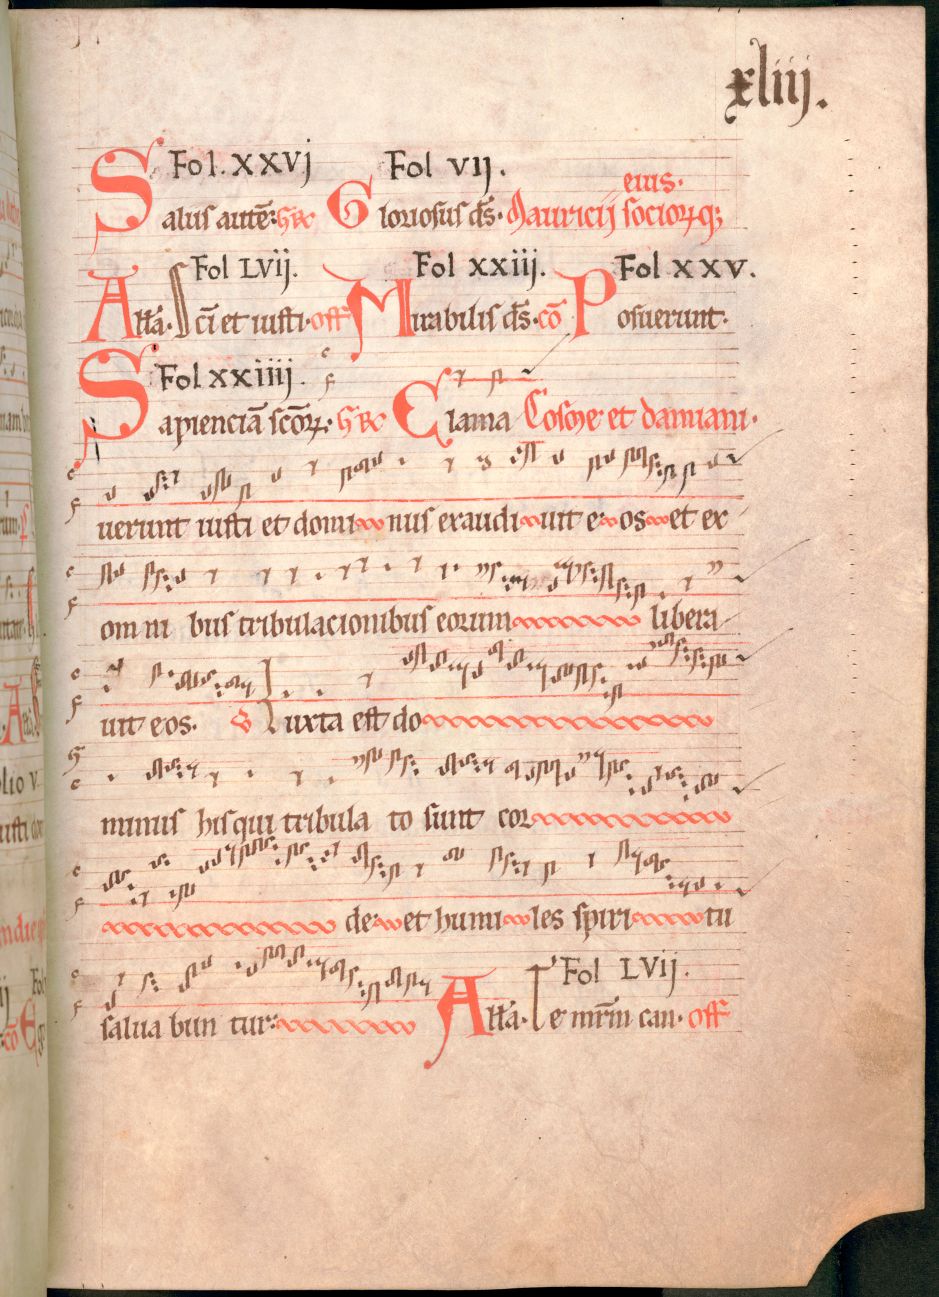 xliij.
Fol. xxvj Fol vij.
eius.
Salus autē: Gr̄ Gloriosus ds̄. Mauricij socioꝝqꝫ
Fol Lvij. Fol xxiij. Fol xxv.
All'a. Sci et iusti. off Mirabilis ds̄. cō Posuerunt.
Fol xxiiij.
Sapienciā scōꝝ. Gr̄ Clama Cosme et damiani.
uerunt iusti et domi nus exaudi uit e os et ex
om ni bus tribulacionibus eorum libera
uit eos. v Iuxta est do
minus his qui tribula to sunt cor
de et humi les spiri tu
Fol Lvij.
salua bun tur: All'a. Te mr̄m can. off